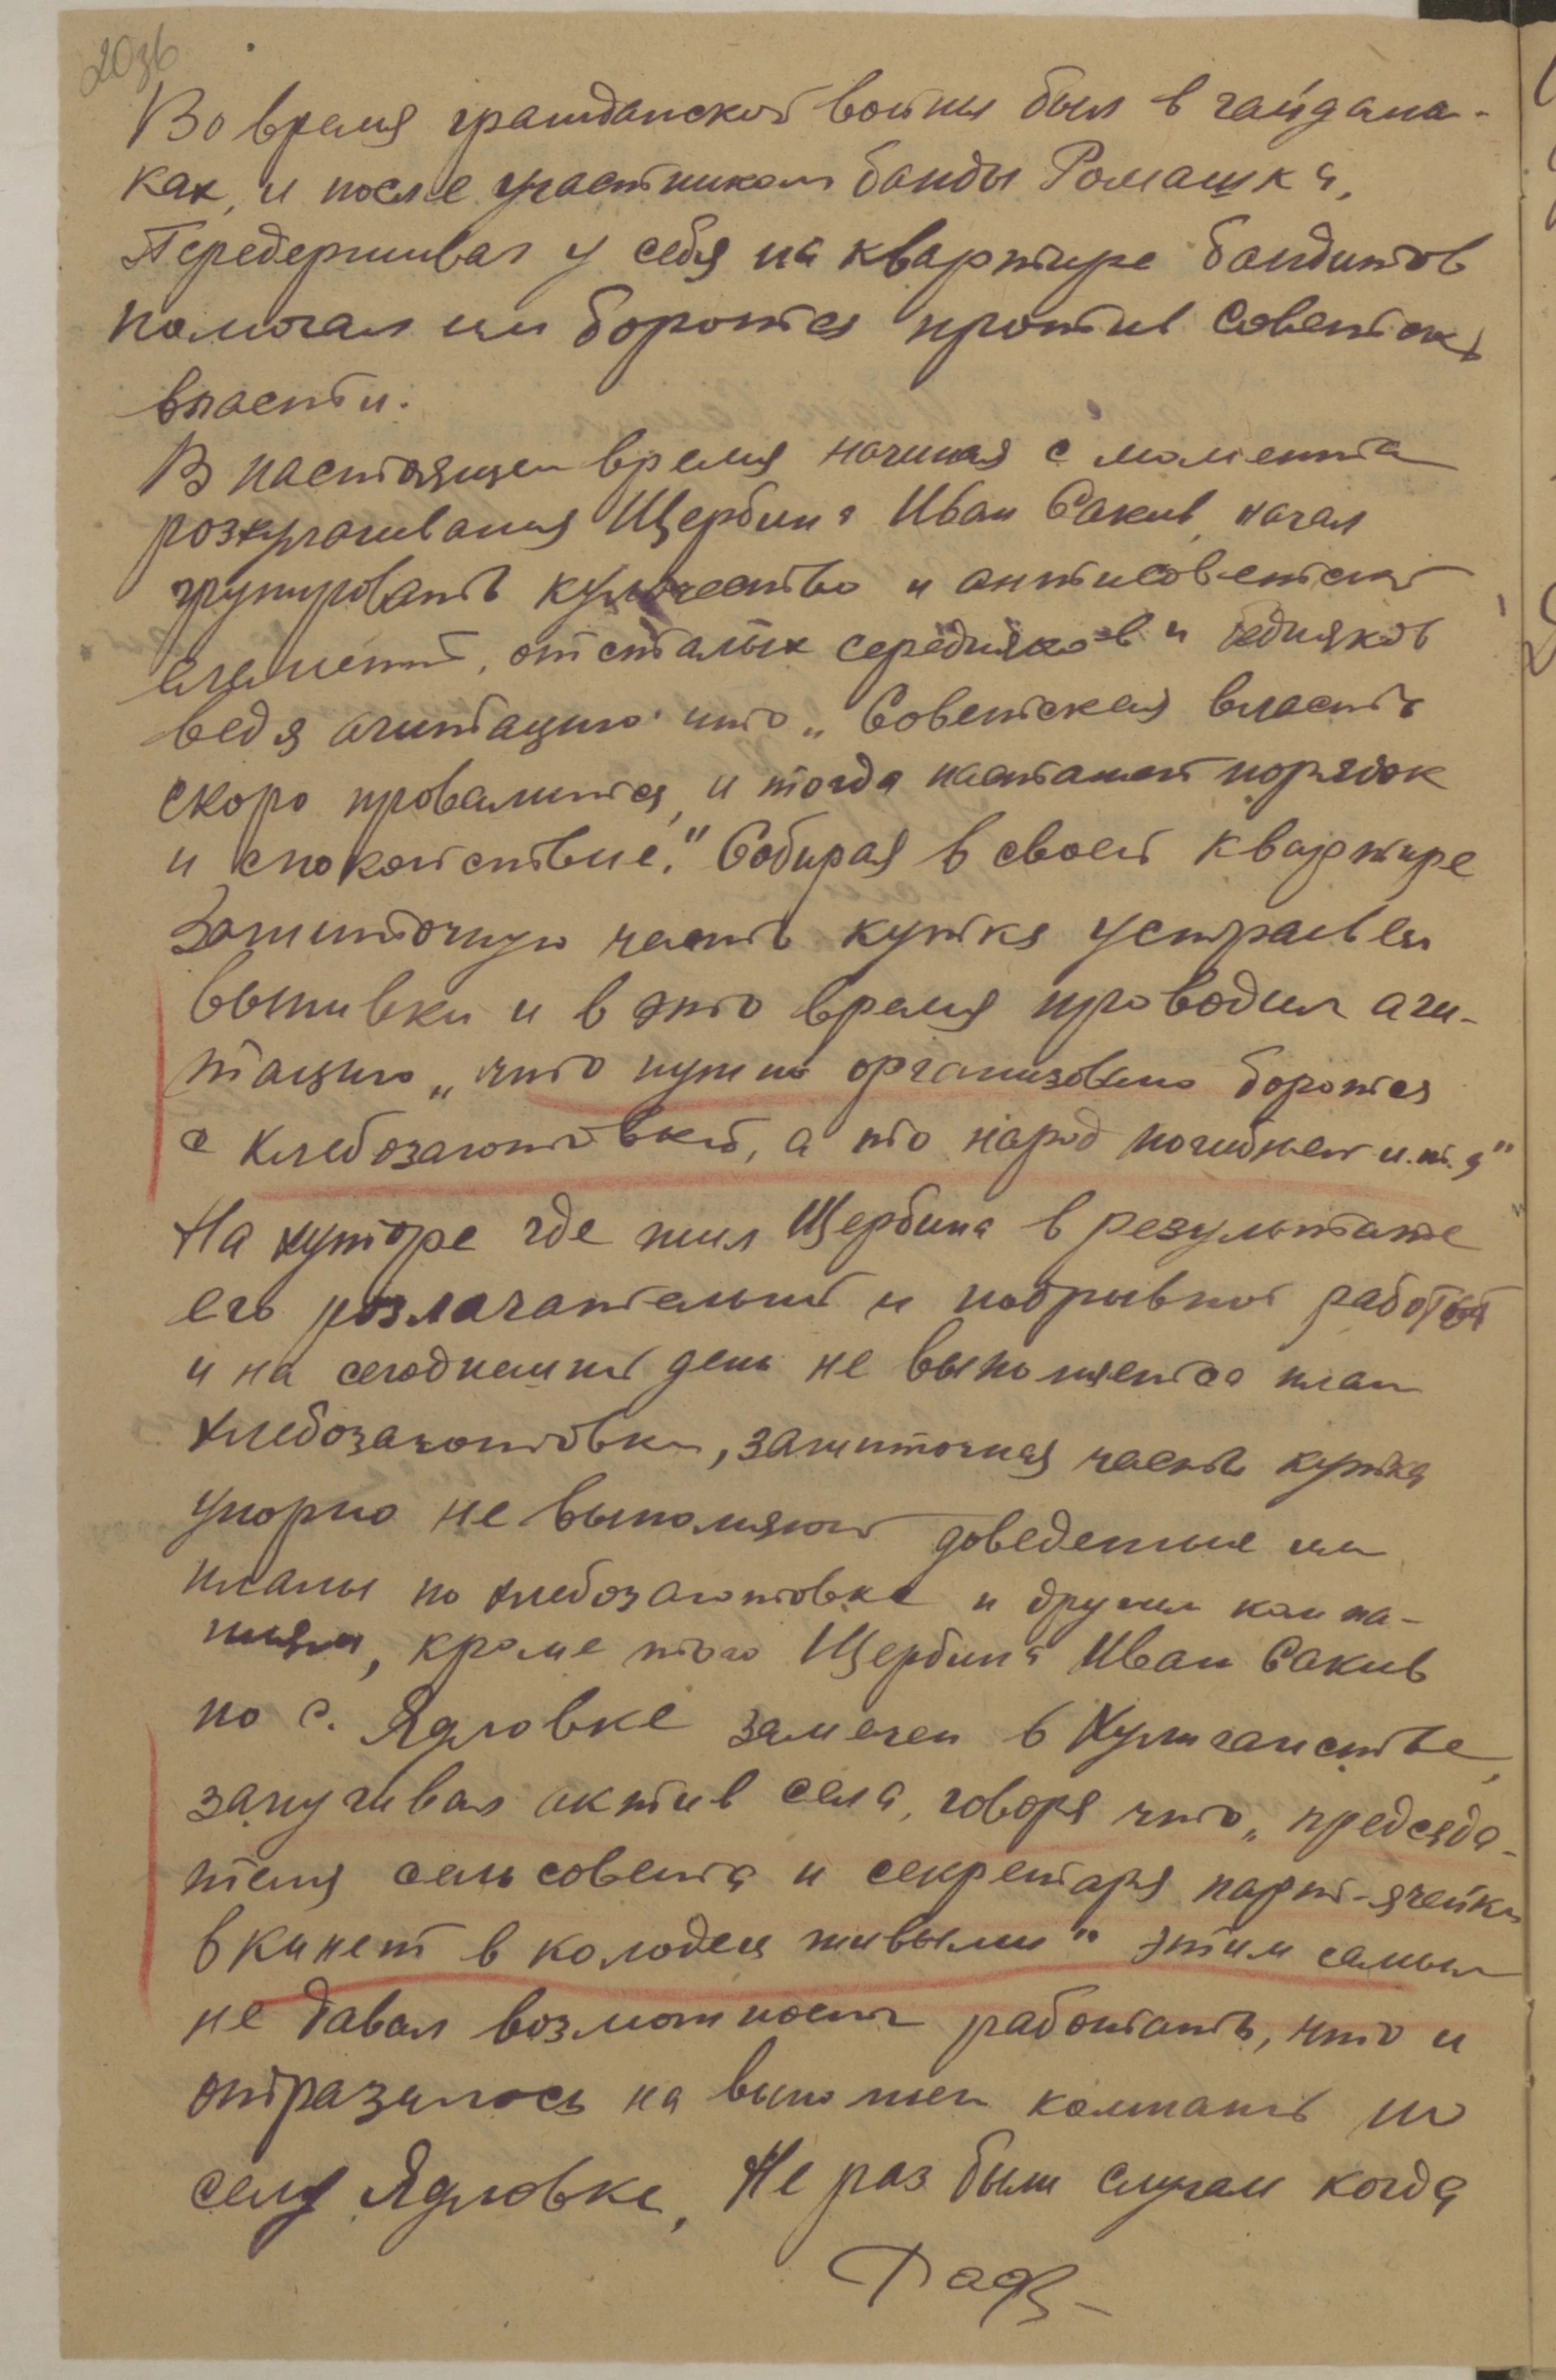 203б
Во время гражданской войны был в гайдама-
ках, и после участником банды Ромашка,
Передерживал у себя на квартире бандитов
помогал им боротся против Советск.
власти.
В настоящем время начиная с момента
розкулачивания Щербина Иван Сакив, начал
групировать кулачество и антисоветский
елемент, отсталых середняков и бедняков
ведя агитацию что „Советская власть
скоро провалится, и тогда настанет порядок
и спокойствие." Собирая в своей квартире
Зажиточную часть кутка устраивал
выпивки и в это время проводил аги-
тацию „что нужно организовано боротся
с хлебозаготовкой, а то народ погибнет и.т.д"
На хуторе где жил Щербина в результате
его розлагательной и подрывной работой
и на сегоднешний день не выполняется план
хлебозаготовки, зажиточная часть кутка
упорно не выполняют доведенные им
планы по хлебозаготовке и другим компа-
ниям, кроме того Щербина Иван Сакив
по с. Ядловке замечен в Хулиганстве,
запугивал актив села, говоря что „председа-
теля сельсовета и секретаря парт-ячейки
вкинет в колодец живыми" этим самым
не давал возможности работать, что и
отразилось на выполнен компаний по
селу Ядловке, Не раз были случаи когда